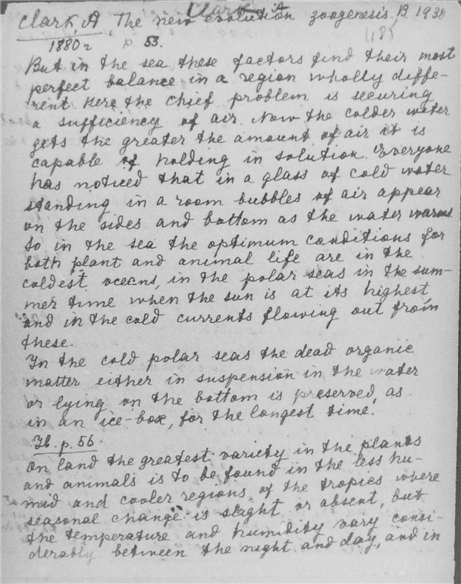 Clark A
Clark, A. The new evolution zoogenesis. B. 1938
(18)
1880 r p. 53.
But in the sea these factors find their most
perfect balance in a region wholly diffe-
rent. Here the chief problem is securing
a sufficiency of air. Now the colder water
gets the greater the amount of air it is
capable of holding in solution. Everyone
has noticed that in a glass of cold water
standing in a room bubbles of air appear
on the sides and bottom as the water warms
So in the sea the optimum conditions for
both plant and animal life are in the
coldest oceans, in the polar seas in the sum-
mer time when the sun is at its highest
and in the cold currents flowing out from
these.
In the cold polar seas the dead organic
matter either in suspension in the water
or lying on the bottom is preserved, as
in an ice-box, for the longest time.
Ib. p. 56
On land the greatest variety in the plants
and animals is to be found in the less hu-
mid and cooler regions of the tropics where
seasonal change is slight or absent, but
the temperature and humidity vary consi-
derably between the night and day, and in